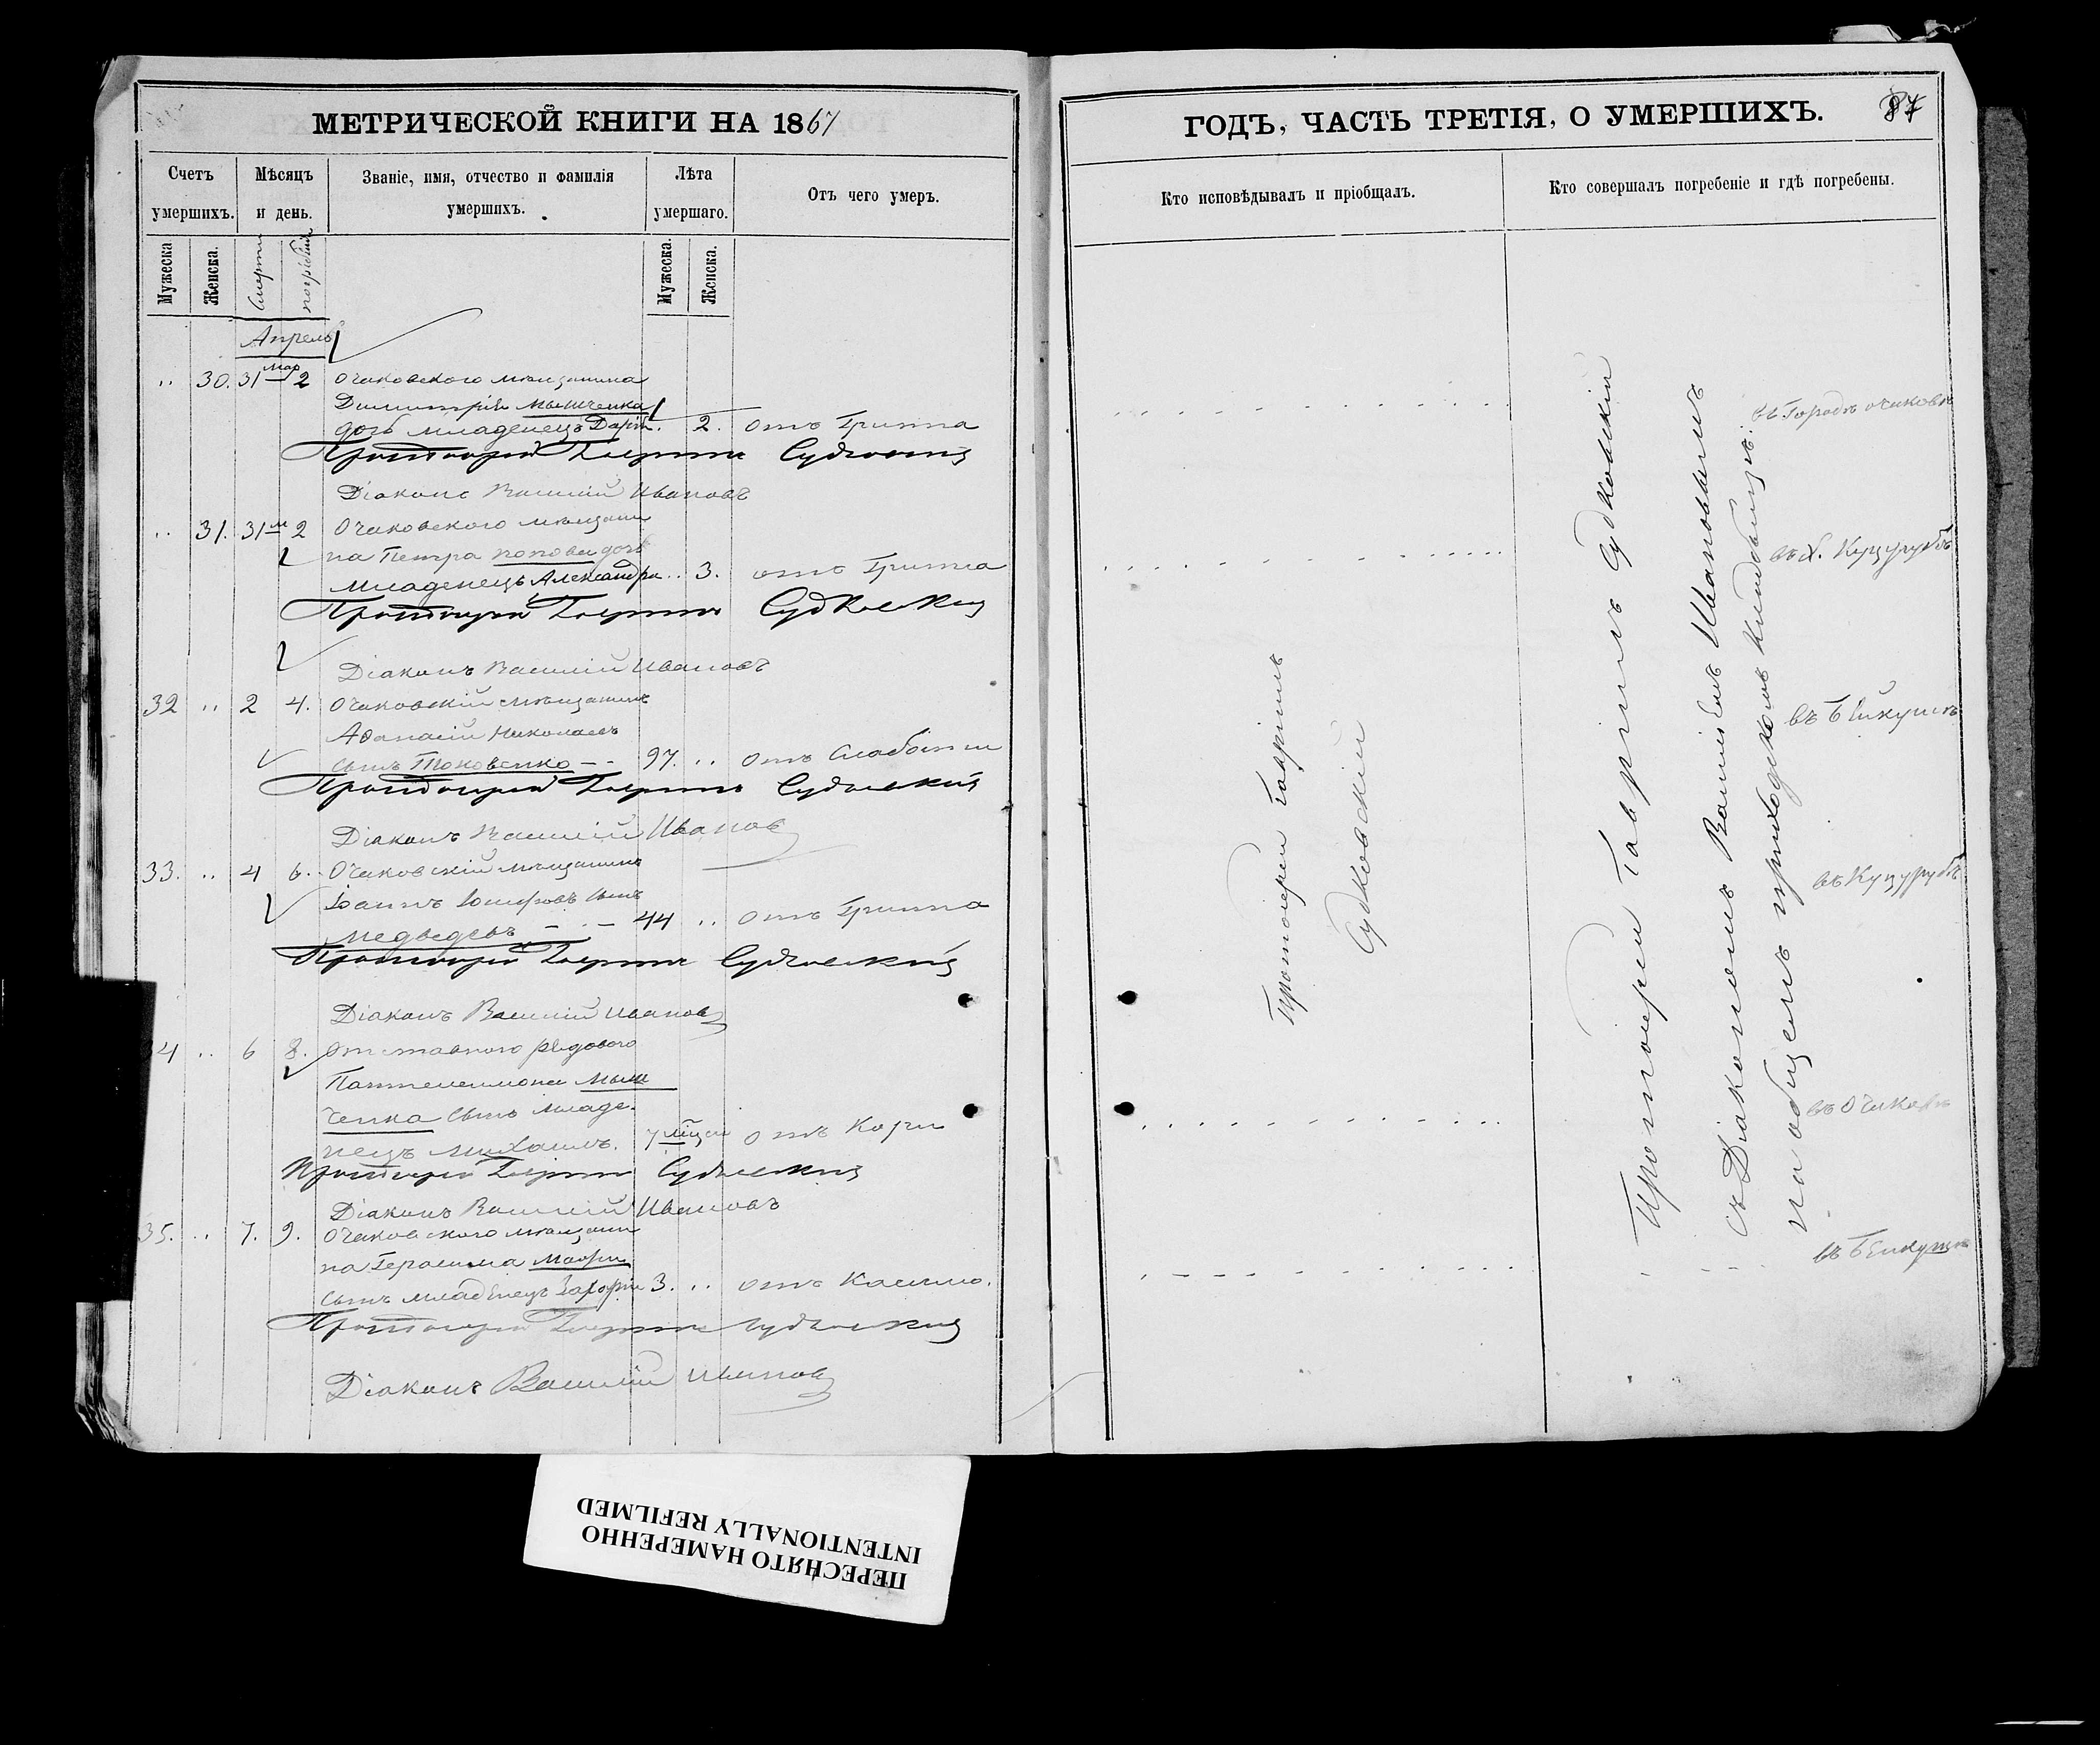 МЕТРИЧЕСКОЙ КНИГИ НА 1867
Счетъ умершихъ.
Мѣсяцъ и день.
Званіе, имя, отчество и фамилія умершихъ.
Лѣта умершаго.
Отъ чего умеръ.
Мужеска
Женска.
Смерти
погребенія
Мужеска.
Женска.
Апрель
.. 30. 31 Мар 2 Очаковского мѣщанина
Димитрія Мышченка
дочь младенецъ Дарія. 2. отъ Гриппа
Протоіерей Гавріилъ Судковскій
Діаконъ Василій Ивановъ
.. 31. 31 м 2 Очаковского мѣщани
на Петра Попова дочь
младенецъ Александра .. 3. отъ Гриппа
Протоіерей Гавріилъ Судковскій
Діаконъ Василій Ивановъ
32 .. 2 4. Очаковскій мѣщанинъ
Афанасій Николаевъ
сынъ Токовенко -- 97. .. отъ Слабости
Протоіерей Гавріилъ Судковскій
Діаконъ Василій Ивановъ
33. .. 4 6. Очаковскій мѣщанинъ
Іоаннъ Іосифовъ сынъ
Медведевъ - . - 44 .. отъ Гриппа
Протоіерей Гавріилъ Судковскій
Діаконъ Василій Ивановъ
4 .. 6 8. Отставного рядового
Пантелеимона Мыш
ченка сынъ младе-
нецъ Михаилъ. 7 мѣсяц отъ Кори
Протоіерей Гавріилъ Судковскій
Діаконъ Василій Ивановъ
35. .. 7. 9. Очаковского мѣщани
на Герасима
сынъ младенецъ Захарія 3. .. отъ Кашлю.
Протоіерей Гавріилъ Судковскій
Діаконъ Василій Ивановъ
ГОДЪ, ЧАСТЬ ТРЕТІЯ, О УМЕРШИХЪ.
87
Кто исповѣдывалъ и пріобщалъ.
Кто совершалъ погребеніе и гдѣ погребены.
Протоіерей Гавріилъ
Судковскій
Протоіерей Гавріилъ Судковскій
съ Діакономъ Василіемъ Ивановымъ
на общемъ приходскомъ кладбищѣ.
въ Городѣ Очаковѣ
въ х. Куцурубѣ
въ Бейкушѣ
въ Куцурубѣ
въ Очаковѣ
въ Бейкушѣ
ПЕРЕСНЯТО НАМЕРЕННО
INTENTIONALLY REFILMED